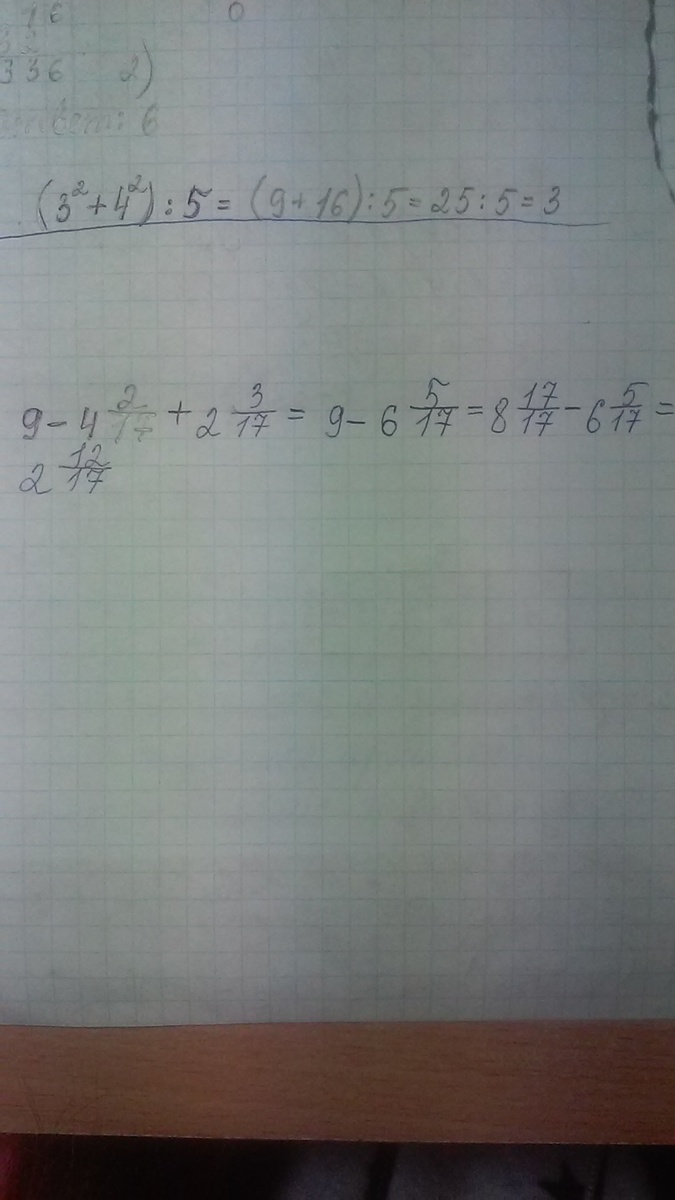 16 0
336 2)
Ответ: 6
(3²+4²):5=(9+16):5=25:5=3
9-4 2/17+2 3/17=9-6 5/17=8 17/17-6 5/17=
2 12/17